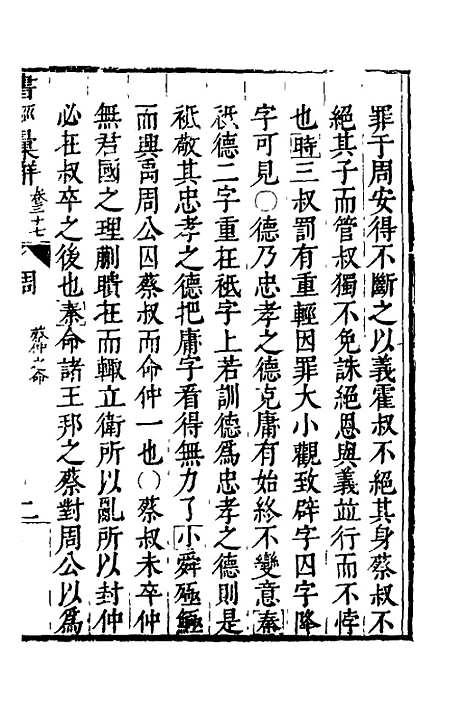 罪于周安得不斷之以義霍叔不絕其身蔡叔不
絕其子而管叔獨不免誅絕恩與義並行而不悖
也時三叔罰有重輕因罪大小觀致辟字囚字降
字可見○德乃忠孝之德克庸有始終不變意秦
祗德二字重在祗字上若訓德爲忠孝之德則是
祗敬其忠孝之德把庸字看得無力了小舜殛鯀
而興禹周公囚蔡叔而命仲一也○蔡叔未卒仲
無君國之理蒯聵在而輒立衛所以亂所以封仲
必在叔卒之後也秦命諸王邦之蔡對周公以爲
書經彙解 卷三十七 周 蔡仲之命 二